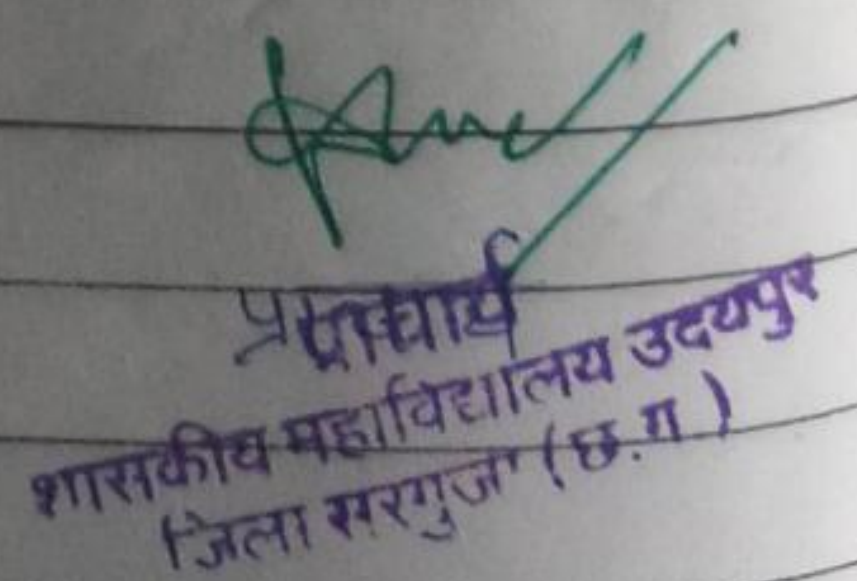 प्राचार्य
शासकीय महाविद्यालय उदयपुर
जिला सरगुजा (छ.ग)